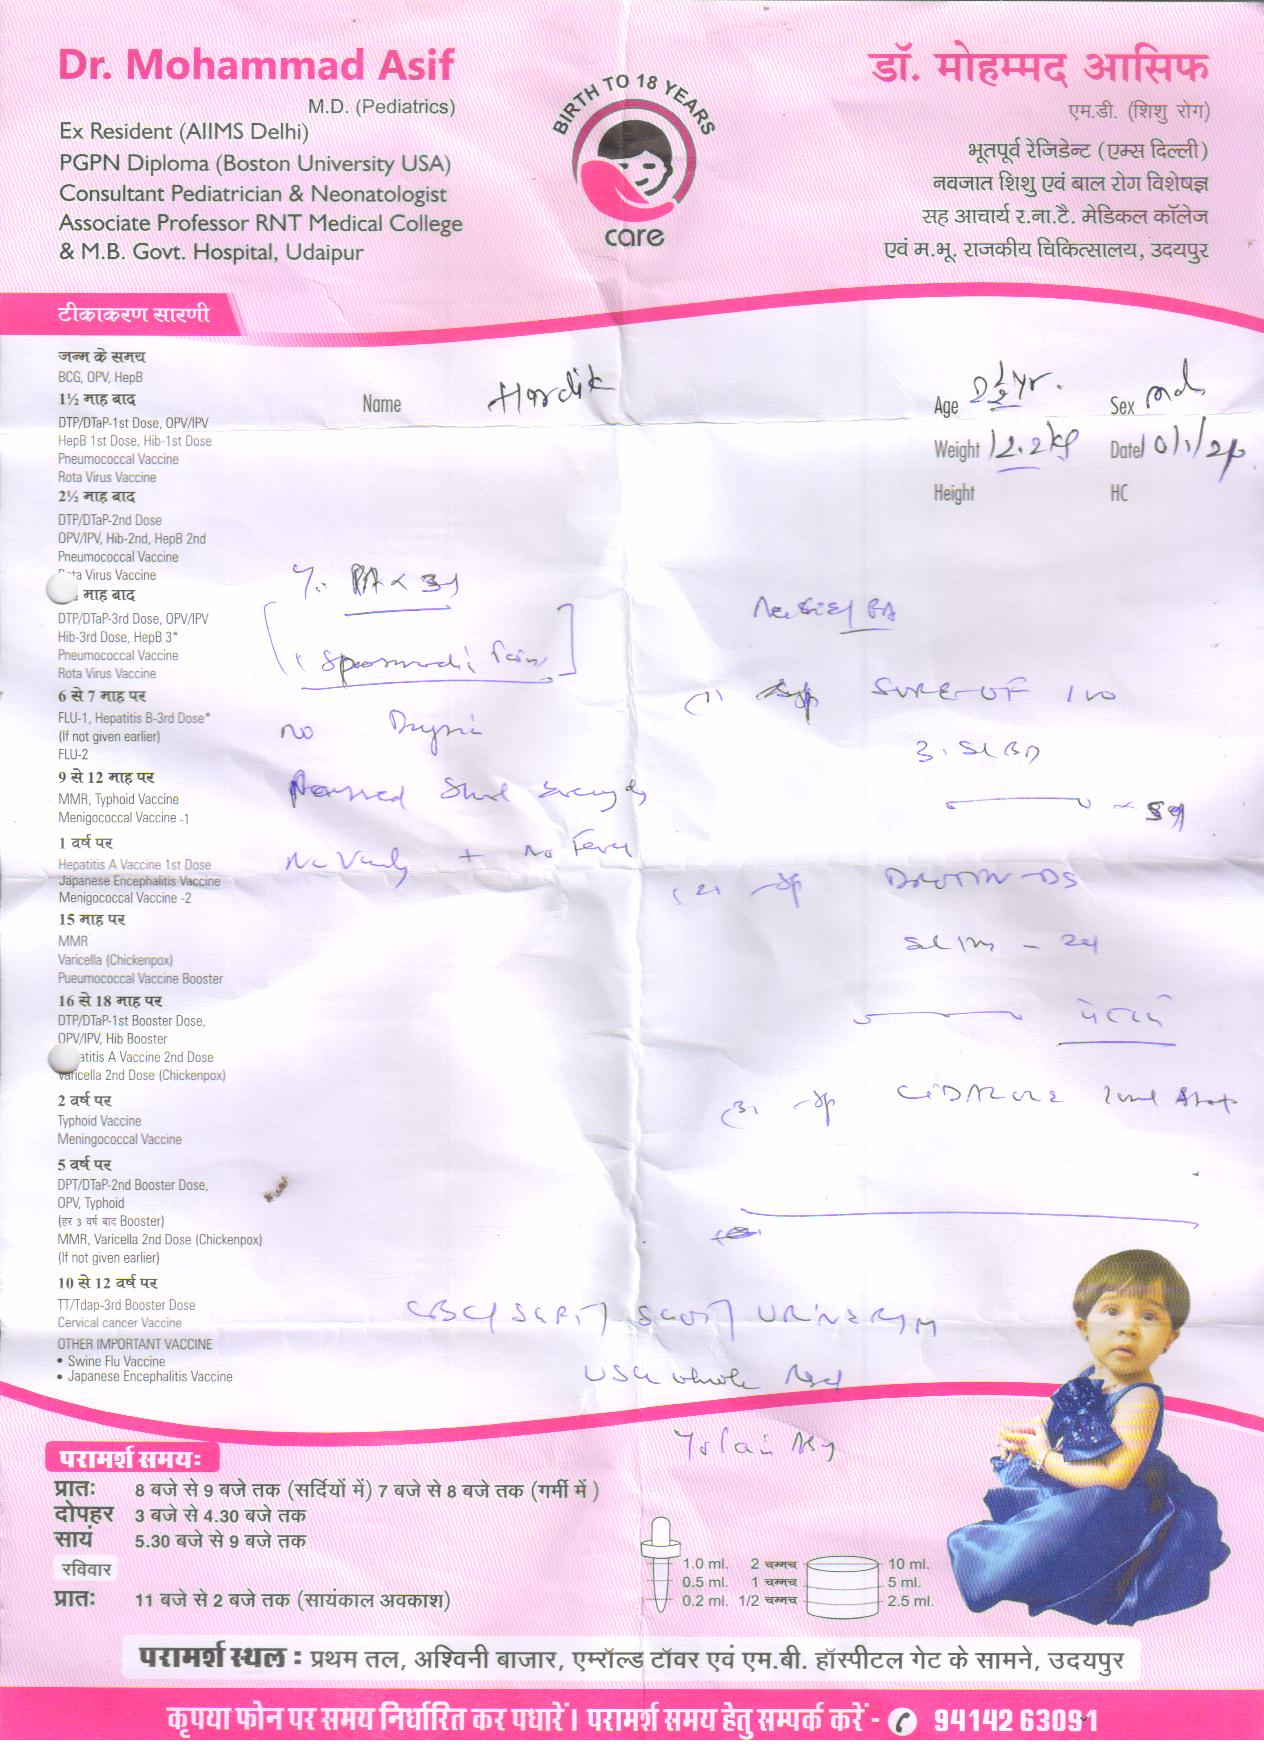 Dr. Mohammad Asif
M.D. (Pediatrics)
Ex Resident (AIIMS Delhi)
PGPN Diploma (Boston University USA)
Consultant Pediatrician & Neonatologist
Associate Professor RNT Medical College
& M.B. Govt. Hospital, Udaipur
BIRTH TO 18 YEARS
care
डॉ. मोहम्मद आसिफ
एम.डी. (शिशु रोग)
भूतपूर्व रेजिडेन्ट (एम्स दिल्ली)
नवजात शिशु एवं बाल रोग विशेषज्ञ
सह आचार्य र.ना.टै. मेडिकल कॉलेज
एवं म.भू. राजकीय चिकित्सालय, उदयपुर
टीकाकरण सारणी
जन्म के समय
BCG, OPV, HepB
1½ माह बाद
DTP/DTaP-1st Dose, OPV/IPV
HepB 1st Dose, Hib-1st Dose
Pneumococcal Vaccine
Rota Virus Vaccine
2½ माह बाद
DTP/DTaP-2nd Dose
OPV/IPV, Hib-2nd, HepB 2nd
Pneumococcal Vaccine
Virus Vaccine
माह बाद
DTP/DTaP-3rd Dose, OPV/IPV
Hib-3rd Dose, HepB 3*
Pneumococcal Vaccine
Rota Virus Vaccine
6 से 7 माह पर
FLU-1, Hepatitis B-3rd Dose*
(If not given earlier)
FLU-2
9 से 12 माह पर
MMR, Typhoid Vaccine
Menigococcal Vaccine -1
1 वर्ष पर
Hepatitis A Vaccine 1st Dose
Japanese Encephalitis Vaccine
Menigococcal Vaccine -2
15 माह पर
MMR
Varicella (Chickenpox)
Pueumococcal Vaccine Booster
16 से 18 माह पर
DTP/DTaP-1st Booster Dose,
OPV/IPV, Hib Booster
atitis A Vaccine 2nd Dose
Varicella 2nd Dose (Chickenpox)
2 वर्ष पर
Typhoid Vaccine
Meningococcal Vaccine
5 वर्ष पर
DPT/DTaP-2nd Booster Dose,
OPV, Typhoid
(हर 3 वर्ष बाद Booster)
MMR, Varicella 2nd Dose (Chickenpox)
(If not given earlier)
10 से 12 वर्ष पर
TT/Tdap-3rd Booster Dose
Cervical cancer Vaccine
OTHER IMPORTANT VACCINE
• Swine Flu Vaccine
• Japanese Encephalitis Vaccine
Name Hardik
Age 2½ yr. Sex
Weight 12.2 kg Date
Height HC
Spasmodic Pain
no
Passed Stool
+ No Fever
(1)
(2) DROTIN-DS
(3)
CBC/SGPT/SGOT/URINE R/M
USG whole Abd
परामर्श समयः
प्रातः 8 बजे से 9 बजे तक (सर्दियों में) 7 बजे से 8 बजे तक (गर्मी में )
दोपहर 3 बजे से 4.30 बजे तक
सायं 5.30 बजे से 9 बजे तक
रविवार
प्रातः 11 बजे से 2 बजे तक (सायंकाल अवकाश)
1.0 ml. 2 चम्मच 10 ml.
0.5 ml. 1 चम्मच 5 ml.
0.2 ml. 1/2 चम्मच 2.5 ml.
परामर्श स्थल : प्रथम तल, अश्विनी बाजार, एमरॉल्ड टॉवर एवं एम.बी. हॉस्पीटल गेट के सामने, उदयपुर
कृपया फोन पर समय निर्धारित कर पधारें। परामर्श समय हेतु सम्पर्क करें - 94142 63091